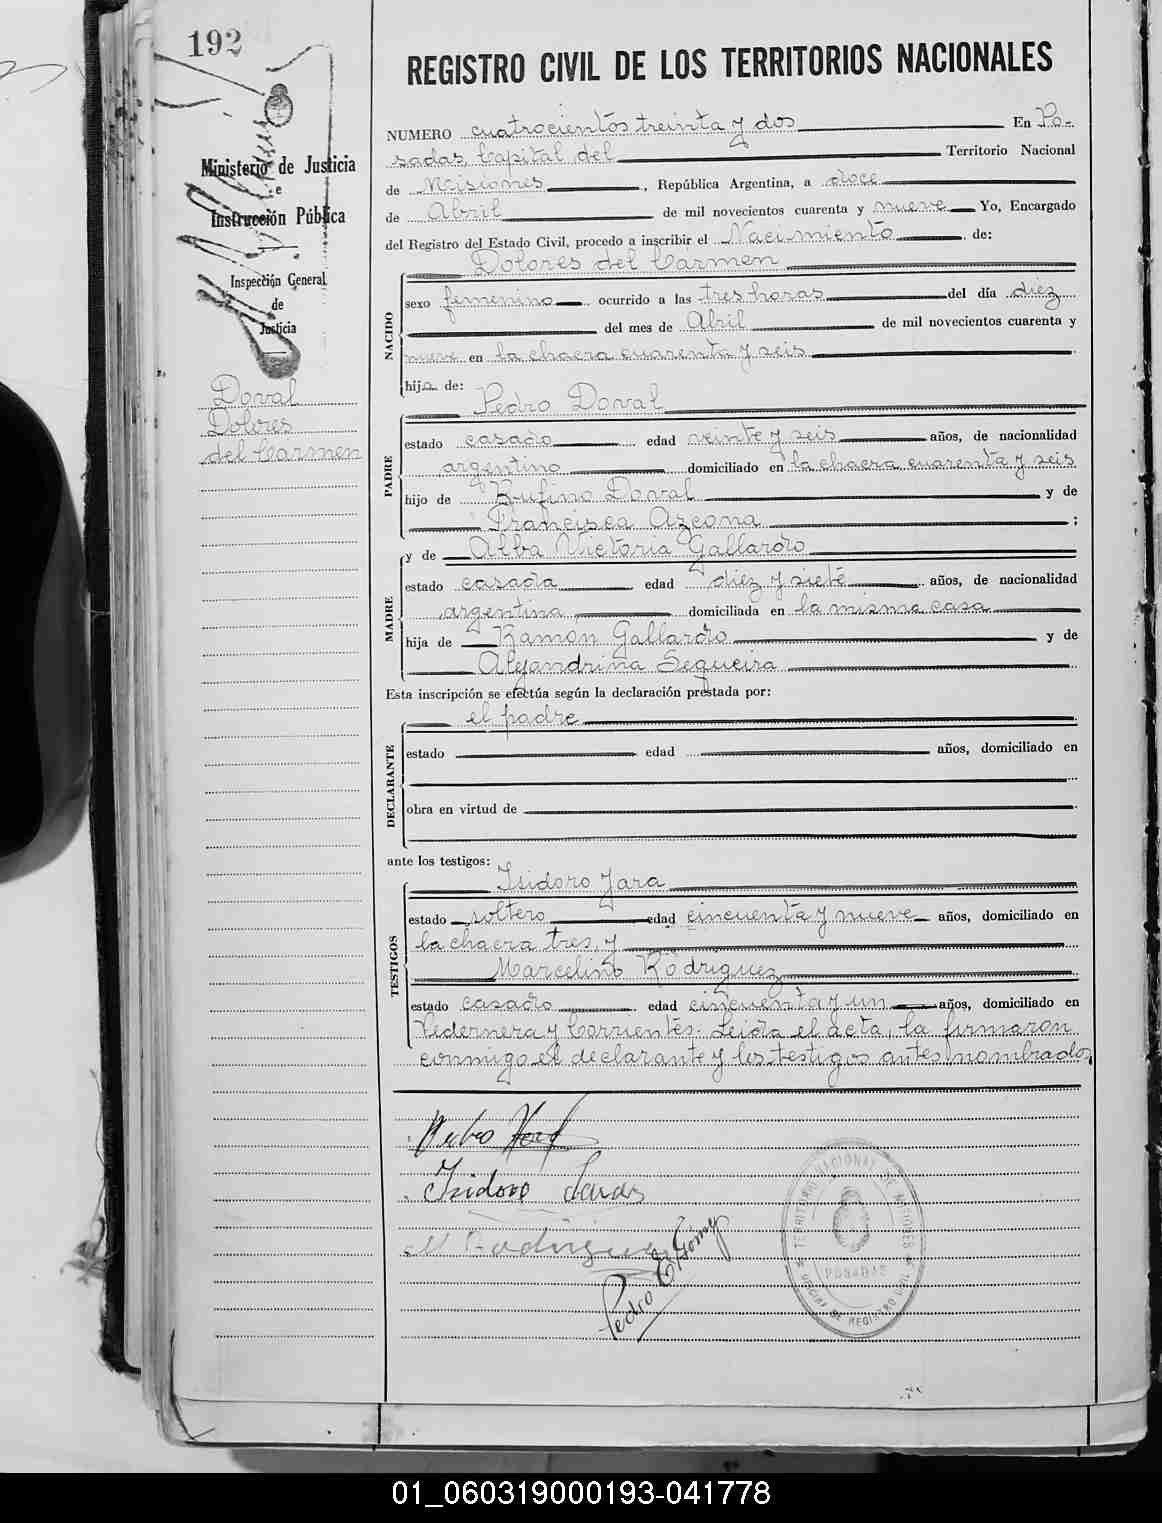 192
REGISTRO CIVIL DE LOS TERRITORIOS NACIONALES
Ministerio de Justicia
e
Instrucción Pública
Inspección General
de
Justicia
Doval
Dolores
del Carmen
NUMERO cuatrocientos treinta y dos En Po-
sadas, Capital del Territorio Nacional
de Misiones, República Argentina, a doce
de Abril de mil novecientos cuarenta y nueve Yo, Encargado
del Registro del Estado Civil, procedo a inscribir el Nacimiento de:
NACIDO
Dolores del Carmen
sexo femenino ocurrido a las tres horas del día diez
del mes de Abril de mil novecientos cuarenta y
nueve en la chacra cuarenta y seis
hija de:
PADRE
Pedro Doval
estado casado edad veinte y seis años, de nacionalidad
argentino domiciliado en la chacra cuarenta y seis
hijo de Rufino Doval y de
Francisca Azcona ;
MADRE
y de Alba Victoria Gallardo
estado casada edad diez y siete años, de nacionalidad
argentina domiciliada en la misma casa
hija de Ramon Gallardo y de
Alejandrina Sequeira
Esta inscripción se efectúa según la declaración prestada por:
DECLARANTE
el padre
estado edad años, domiciliado en
obra en virtud de
ante los testigos:
TESTIGOS
Isidoro Jara
estado soltero edad cincuenta y nueve años, domiciliado en
la chacra tres, y
Marcelino Rodriguez
estado casado edad cincuenta y un años, domiciliado en
Pedernera y Corrientes. Leida el acta, la firmaron
conmigo el declarante y los testigos antes nombrados
Isidoro Jara
M Rodriguez
Pedro E Gómez
TERRITORIO NACIONAL DE MISIONES
POSADAS
01_060319000193-041778